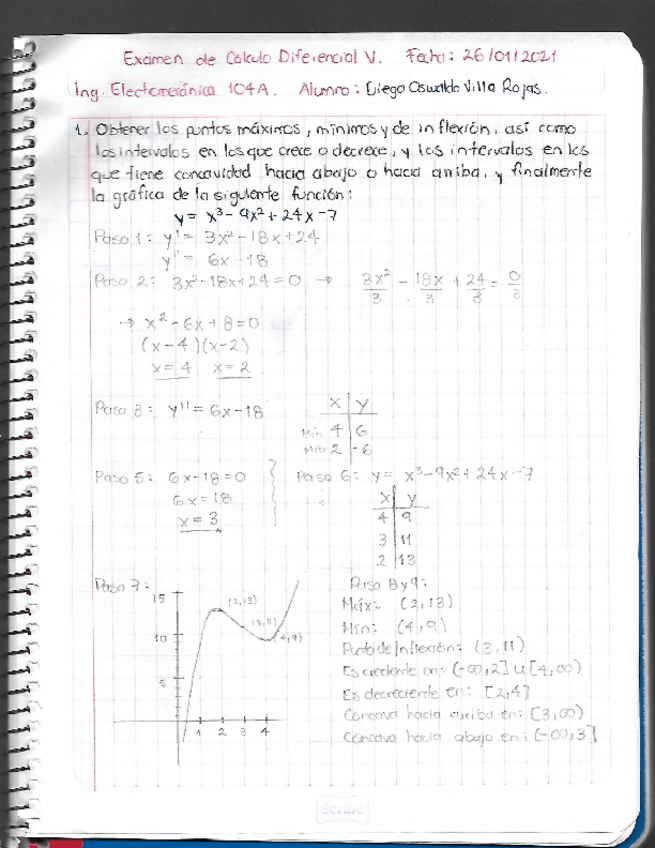 Examen de Cálculo Diferencial V. Fecha: 26/01/2021
Ing. Electomecánica 104A. Alumno: Diego Oswaldo Villa Rojas.
1. Obtener los puntos máximos, mínimos y de inflexión, así como
los intervalos en los que crece o decrece, y los intervalos en los
que tiene concavidad hacia abajo o hacia arriba, y finalmente
la gráfica de la siguiente función:
y = x³ - 9x² + 24x - 7
Paso 1: y' = 3x² - 18x + 24
y'' = 6x - 18
Paso 2: 3x² - 18x + 24 = 0 → 3x²/3 - 18x/3 + 24/3 = 0/3
→ x² - 6x + 8 = 0
(x - 4)(x - 2)
x = 4 x = 2
Paso 3: y'' = 6x - 18
x y
Mín 4 6
Máx 2 -6
Paso 5: 6x - 18 = 0
6x = 18
x = 3
Paso 6: y = x³ - 9x² + 24x - 7
x y
4 9
3 11
2 13
Paso 7:
15
10
5
1 2 3 4
(2,13)
(3,11)
(4,9)
Paso 8 y 9:
Máx: (2,13)
Mín: (4,9)
Punto de Inflexión: (3,11)
Es creciente en: (-∞,2] U [4,∞)
Es decreciente en: [2,4]
Cóncava hacia arriba en: [3,∞)
Cóncava hacia abajo en: (-∞,3]